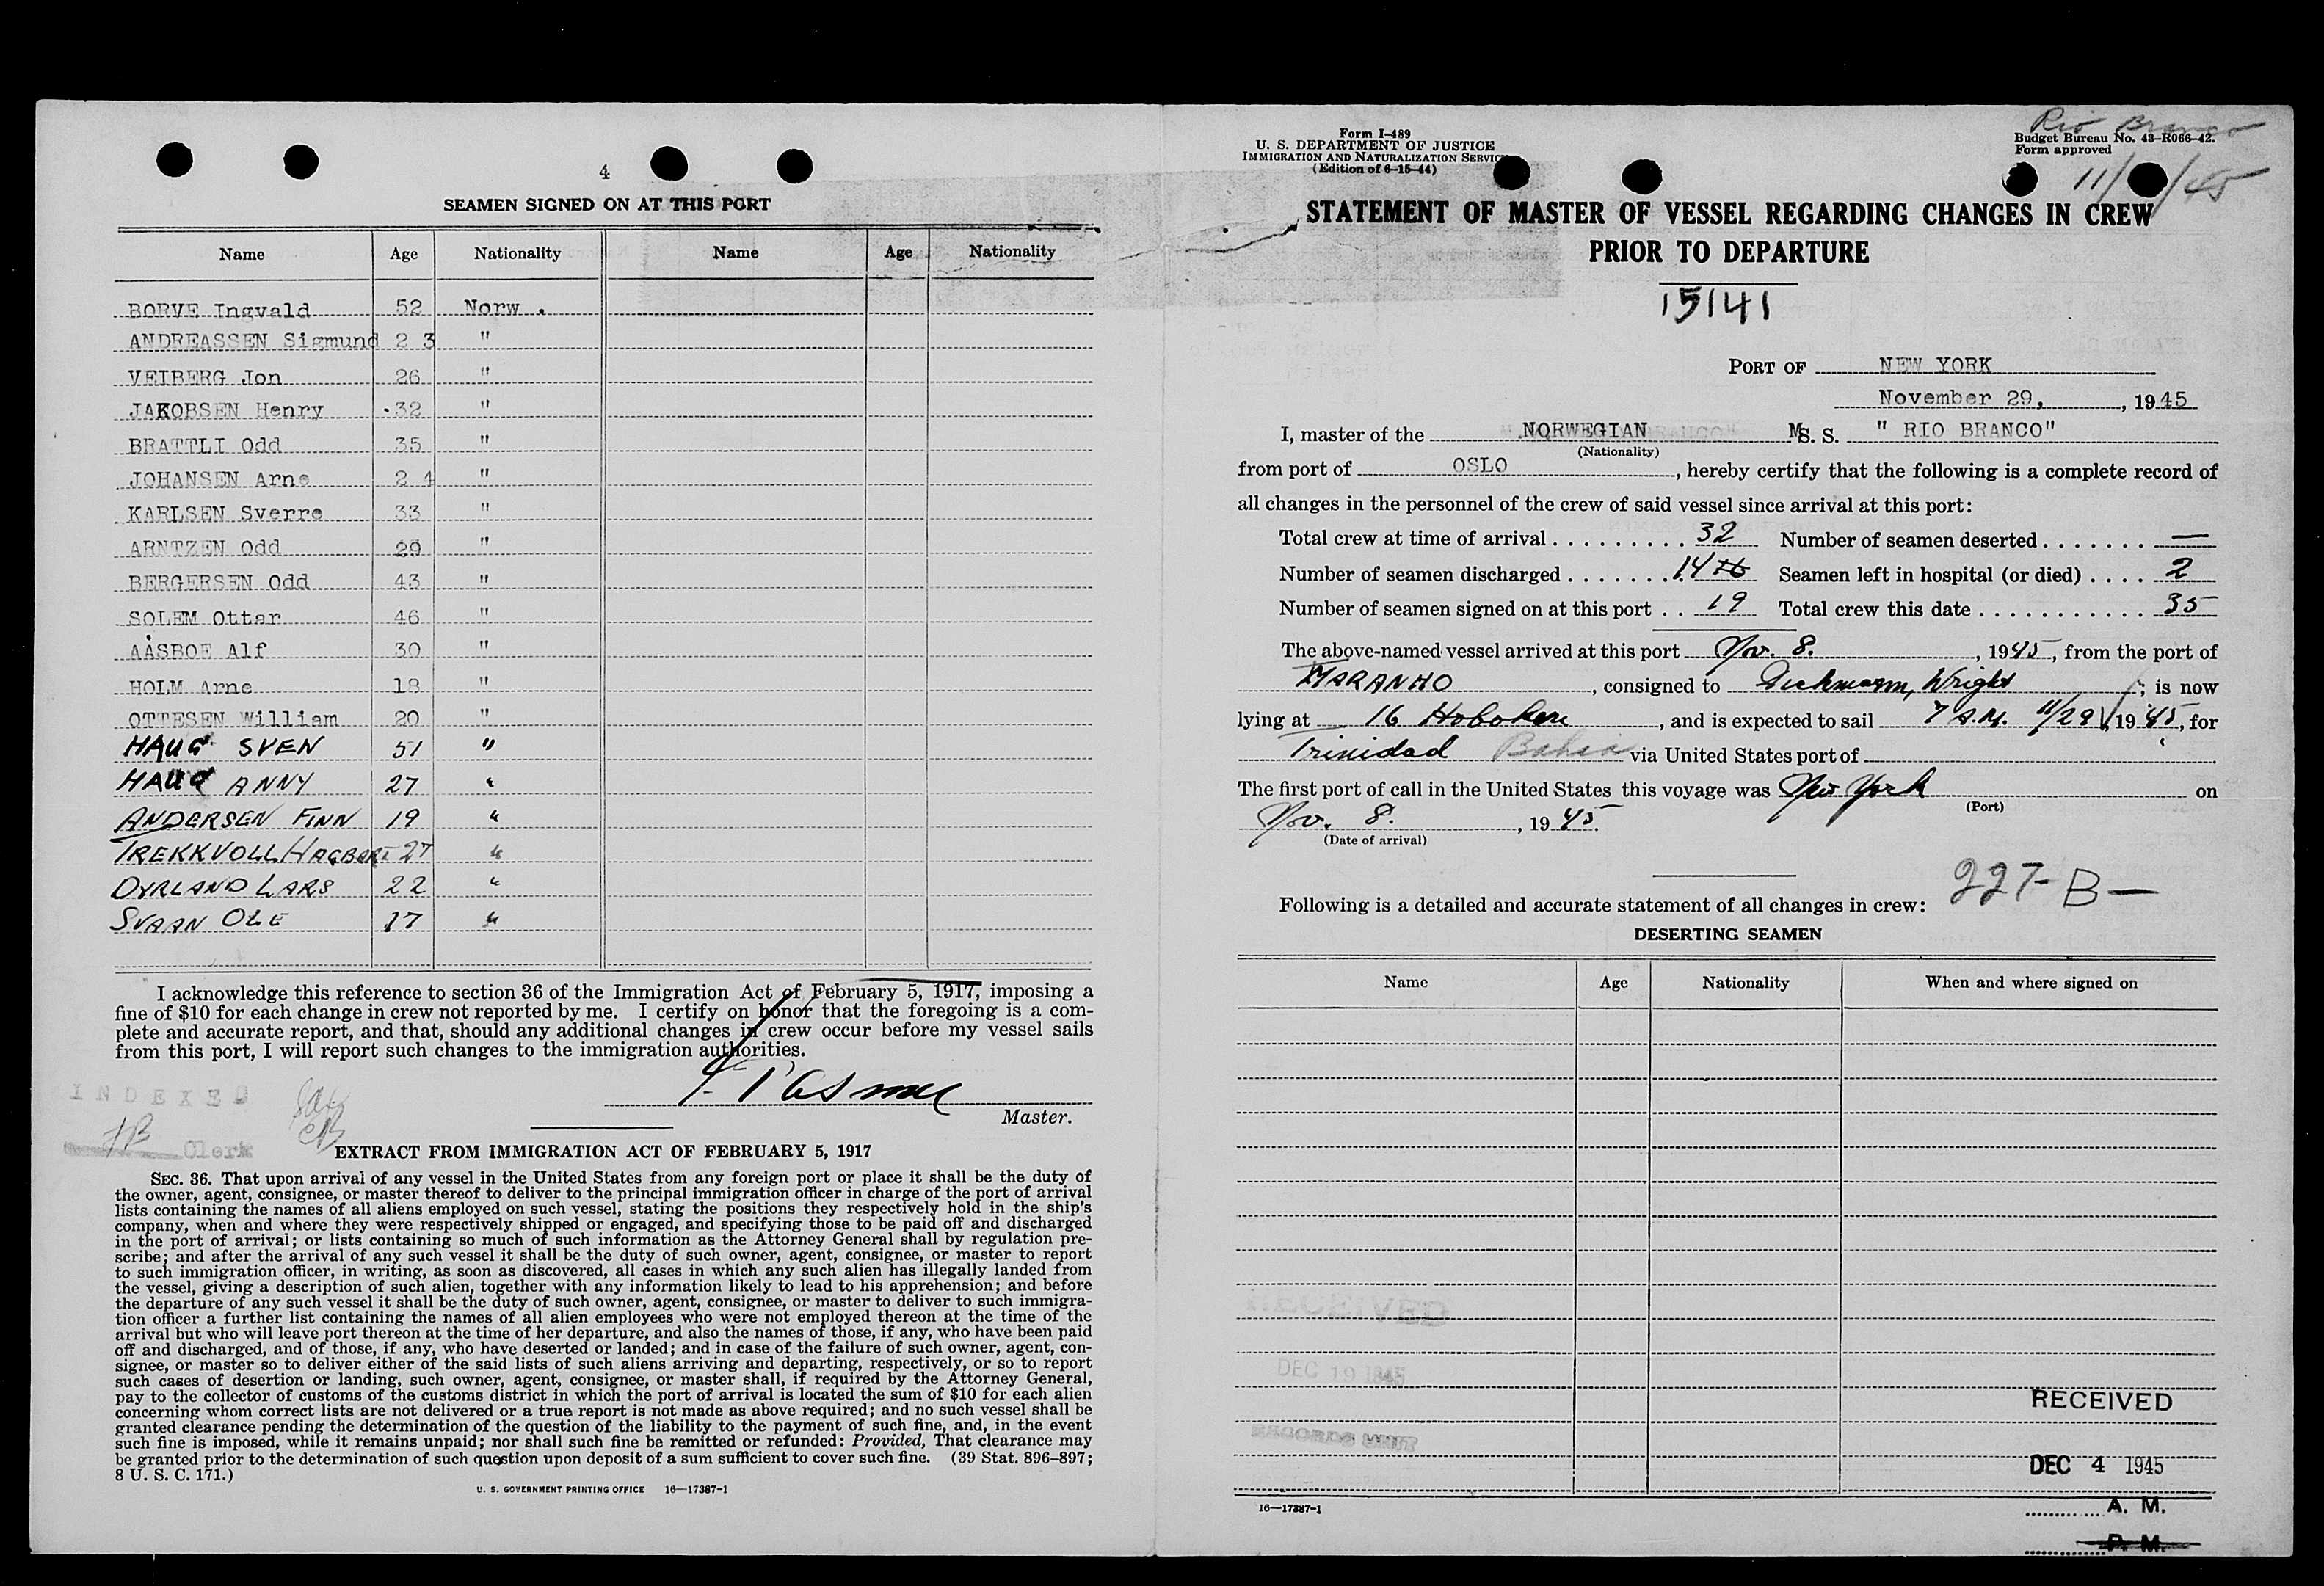 4
SEAMEN SIGNED ON AT THIS PORT
Name Age Nationality Name Age Nationality
BORVE Ingvald 52 Norw .
ANDREASSEN Sigmund 2 3 "
VEIBERG Jon 26 "
JAKOBSEN Henry 32 "
BRATTLI Odd 35 "
JOHANSEN Arne 2 4 "
KARLSEN Sverre 33 "
ARNTZEN Odd 29 "
BERGERSEN Odd 43 "
SOLEM Ottar 46 "
AASBOE Alf 30 "
HOLM Arne 18 "
OTTESEN William 20 "
HAUG SVEN 51 "
HAUG ANNY 27 "
ANDERSEN FINN 19 "
TREKKVOLL HAGBART 27 "
DYRLAND LARS 22 "
SVAAN OLE 17 "
I acknowledge this reference to section 36 of the Immigration Act of February 5, 1917, imposing a
fine of $10 for each change in crew not reported by me. I certify on honor that the foregoing is a com-
plete and accurate report, and that, should any additional changes in crew occur before my vessel sails
from this port, I will report such changes to the immigration authorities.
Master.
INDEXED
JB Clerk
EXTRACT FROM IMMIGRATION ACT OF FEBRUARY 5, 1917
SEC. 36. That upon arrival of any vessel in the United States from any foreign port or place it shall be the duty of
the owner, agent, consignee, or master thereof to deliver to the principal immigration officer in charge of the port of arrival
lists containing the names of all aliens employed on such vessel, stating the positions they respectively hold in the ship's
company, when and where they were respectively shipped or engaged, and specifying those to be paid off and discharged
in the port of arrival; or lists containing so much of such information as the Attorney General shall by regulation pre-
scribe; and after the arrival of any such vessel it shall be the duty of such owner, agent, consignee, or master to report
to such immigration officer, in writing, as soon as discovered, all cases in which any such alien has illegally landed from
the vessel, giving a description of such alien, together with any information likely to lead to his apprehension; and before
the departure of any such vessel it shall be the duty of such owner, agent, consignee, or master to deliver to such immigra-
tion officer a further list containing the names of all alien employees who were not employed thereon at the time of the
arrival but who will leave port thereon at the time of her departure, and also the names of those, if any, who have been paid
off and discharged, and of those, if any, who have deserted or landed; and in case of the failure of such owner, agent, con-
signee, or master so to deliver either of the said lists of such aliens arriving and departing, respectively, or so to report
such cases of desertion or landing, such owner, agent, consignee, or master shall, if required by the Attorney General,
pay to the collector of customs of the customs district in which the port of arrival is located the sum of $10 for each alien
concerning whom correct lists are not delivered or a true report is not made as above required; and no such vessel shall be
granted clearance pending the determination of the question of the liability to the payment of such fine, and, in the event
such fine is imposed, while it remains unpaid; nor shall such fine be remitted or refunded: Provided, That clearance may
be granted prior to the determination of such question upon deposit of a sum sufficient to cover such fine. (39 Stat. 896–897;
8 U. S. C. 171.)
U. S. GOVERNMENT PRINTING OFFICE 16—17387-1
Form I-489
U. S. DEPARTMENT OF JUSTICE
IMMIGRATION AND NATURALIZATION SERVICE
(Edition of 6-15-44)
Rio Branco
Budget Bureau No. 43-R066-42.
Form approved
11/ /45
STATEMENT OF MASTER OF VESSEL REGARDING CHANGES IN CREW
PRIOR TO DEPARTURE
15141
PORT OF NEW YORK
November 29, , 1945
I, master of the NORWEGIAN MS. S. " RIO BRANCO"
(Nationality)
from port of OSLO, hereby certify that the following is a complete record of
all changes in the personnel of the crew of said vessel since arrival at this port:
Total crew at time of arrival 32 Number of seamen deserted —
Number of seamen discharged 14 16 Seamen left in hospital (or died) 2
Number of seamen signed on at this port 19 Total crew this date 35
The above-named vessel arrived at this port Nov. 8. , 1945, from the port of
MARANHO, consigned to Dichmann, Wright ; is now
lying at 16 Hoboken, and is expected to sail 7 A.M. 11/29, 1945, for
Trinidad Bahia via United States port of
The first port of call in the United States this voyage was New York on
(Port)
Nov. 8. , 1945.
(Date of arrival)
227-B—
Following is a detailed and accurate statement of all changes in crew:
DESERTING SEAMEN
Name Age Nationality When and where signed on
RECEIVED
DEC 19 1945
RECORDS UNIT
RECEIVED
DEC 4 1945
A. M.
P. M.
16—17387-1